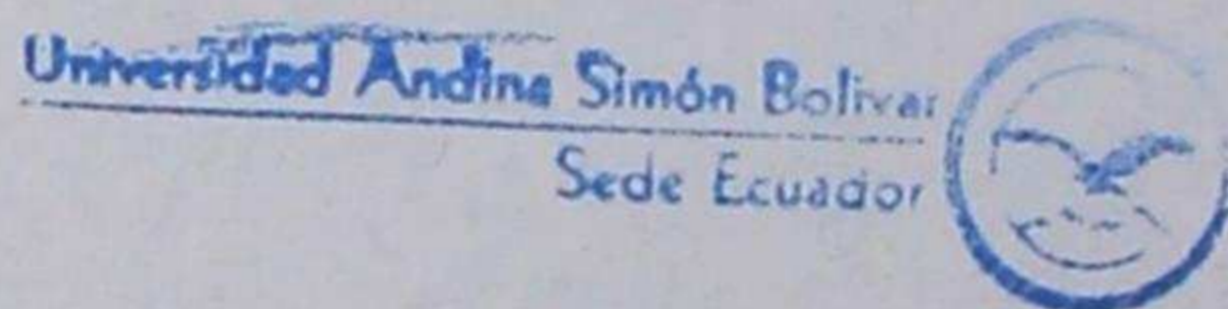 Universidad Andina Simón Bolivar
Sede Ecuador